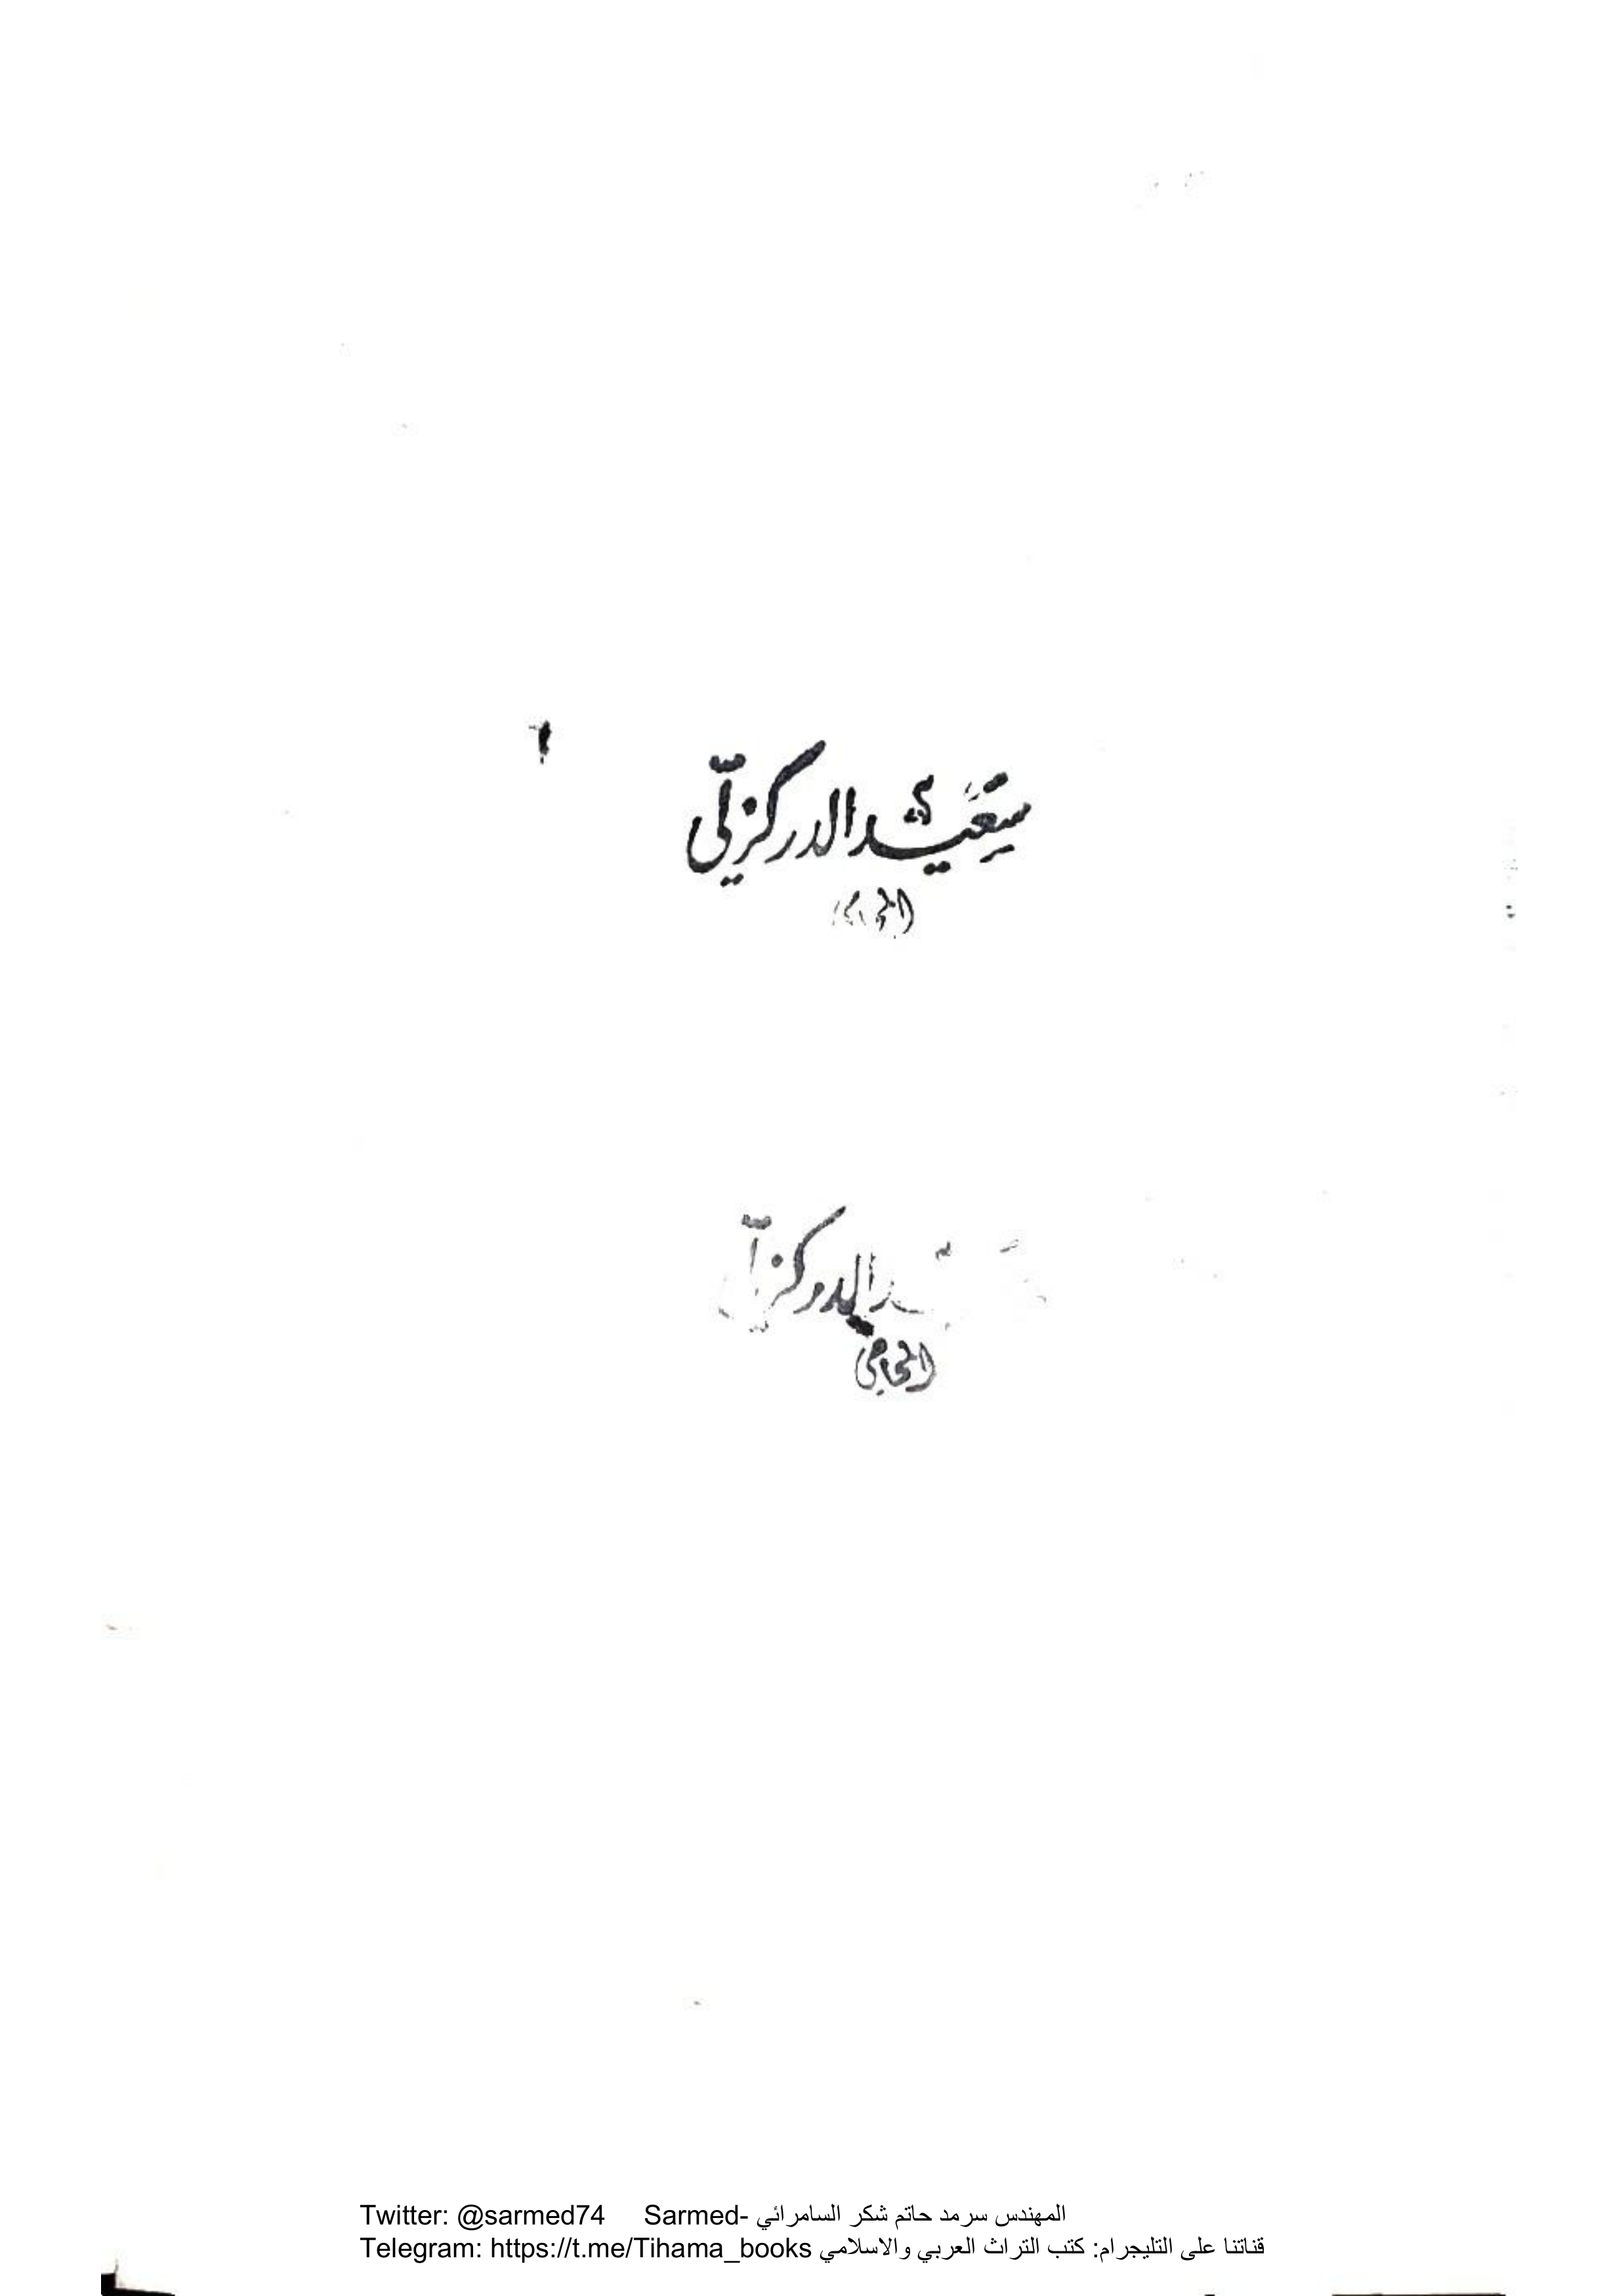 سعيد الدركزلي
المحامي
الدركزلي
المحامي
Twitter: @sarmed74 Sarmed- المهندس سرمد حاتم شكر السامرائي
Telegram: https://t.me/Tihama_books قناتنا على التليجرام: كتب التراث العربي والاسلامي